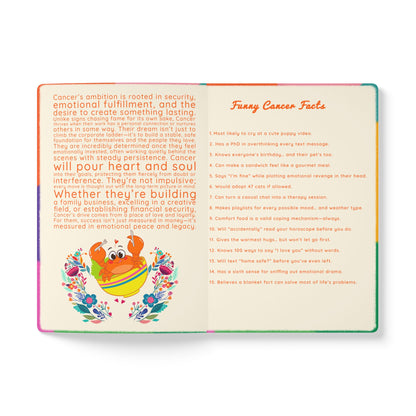 Cancer's ambition is rooted in security,
emotional fulfillment, and the
desire to create something lasting.
Unlike signs chasing fame for its own sake, Cancer
thrives when their work has a personal connection or nurtures
others in some way. Their dream isn't just to
climb the corporate ladder—it's to build a stable, safe
foundation for themselves and the people they love.
They are incredibly determined once they feel
emotionally invested, often working quietly behind the
scenes with steady persistence. Cancer
will pour heart and soul
into their goals, protecting them fiercely from doubt or
interference. They're not impulsive;
every move is thought out with the long-term picture in mind.
Whether they're building
a family business, excelling in a creative
field, or establishing financial security,
Cancer's drive comes from a place of love and loyalty.
For them, success isn't just measured in money—it's
measured in emotional peace and legacy.
Funny Cancer Facts
1. Most likely to cry at a cute puppy video.
2. Has a PhD in overthinking every text message.
3. Knows everyone's birthday… and their pet's too.
4. Can make a sandwich feel like a gourmet meal.
5. Says "I'm fine" while plotting emotional revenge in their head.
6. Would adopt 47 cats if allowed.
7. Can turn a casual chat into a therapy session.
8. Makes playlists for every possible mood… and weather type.
9. Comfort food is a valid coping mechanism—always.
10. Will "accidentally" read your horoscope before you do.
11. Gives the warmest hugs… but won't let go first.
12. Knows 105 ways to say "I love you" without words.
13. Will text "home safe?" before you've even left.
14. Has a sixth sense for sniffing out emotional drama.
15. Believes a blanket fort can solve most of life's problems.